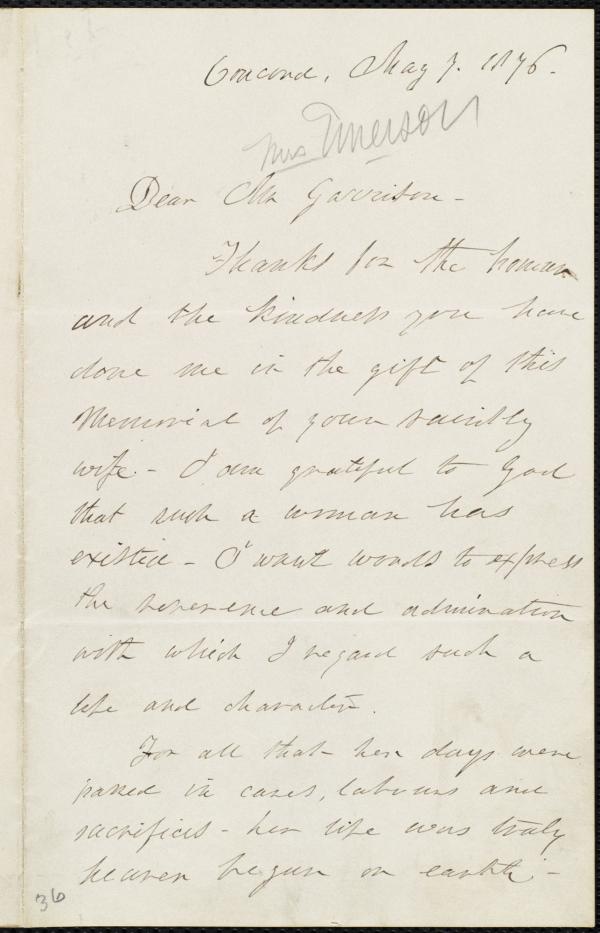 Concord, May 7. 1876.
Mrs Emerson
Dear Mr Garrison -
Thanks for the honour
and the kindness you have
done me in the gift of this
Memorial of your saintly
wife. - I am grateful to God
that such a woman has
existed - I want words to express
the reverence and admiration
with which I regard such a
life and character.
For all that her days were
passed in cares, labours and
sacrifices - her life was truly
heaven begun on earth; -
36